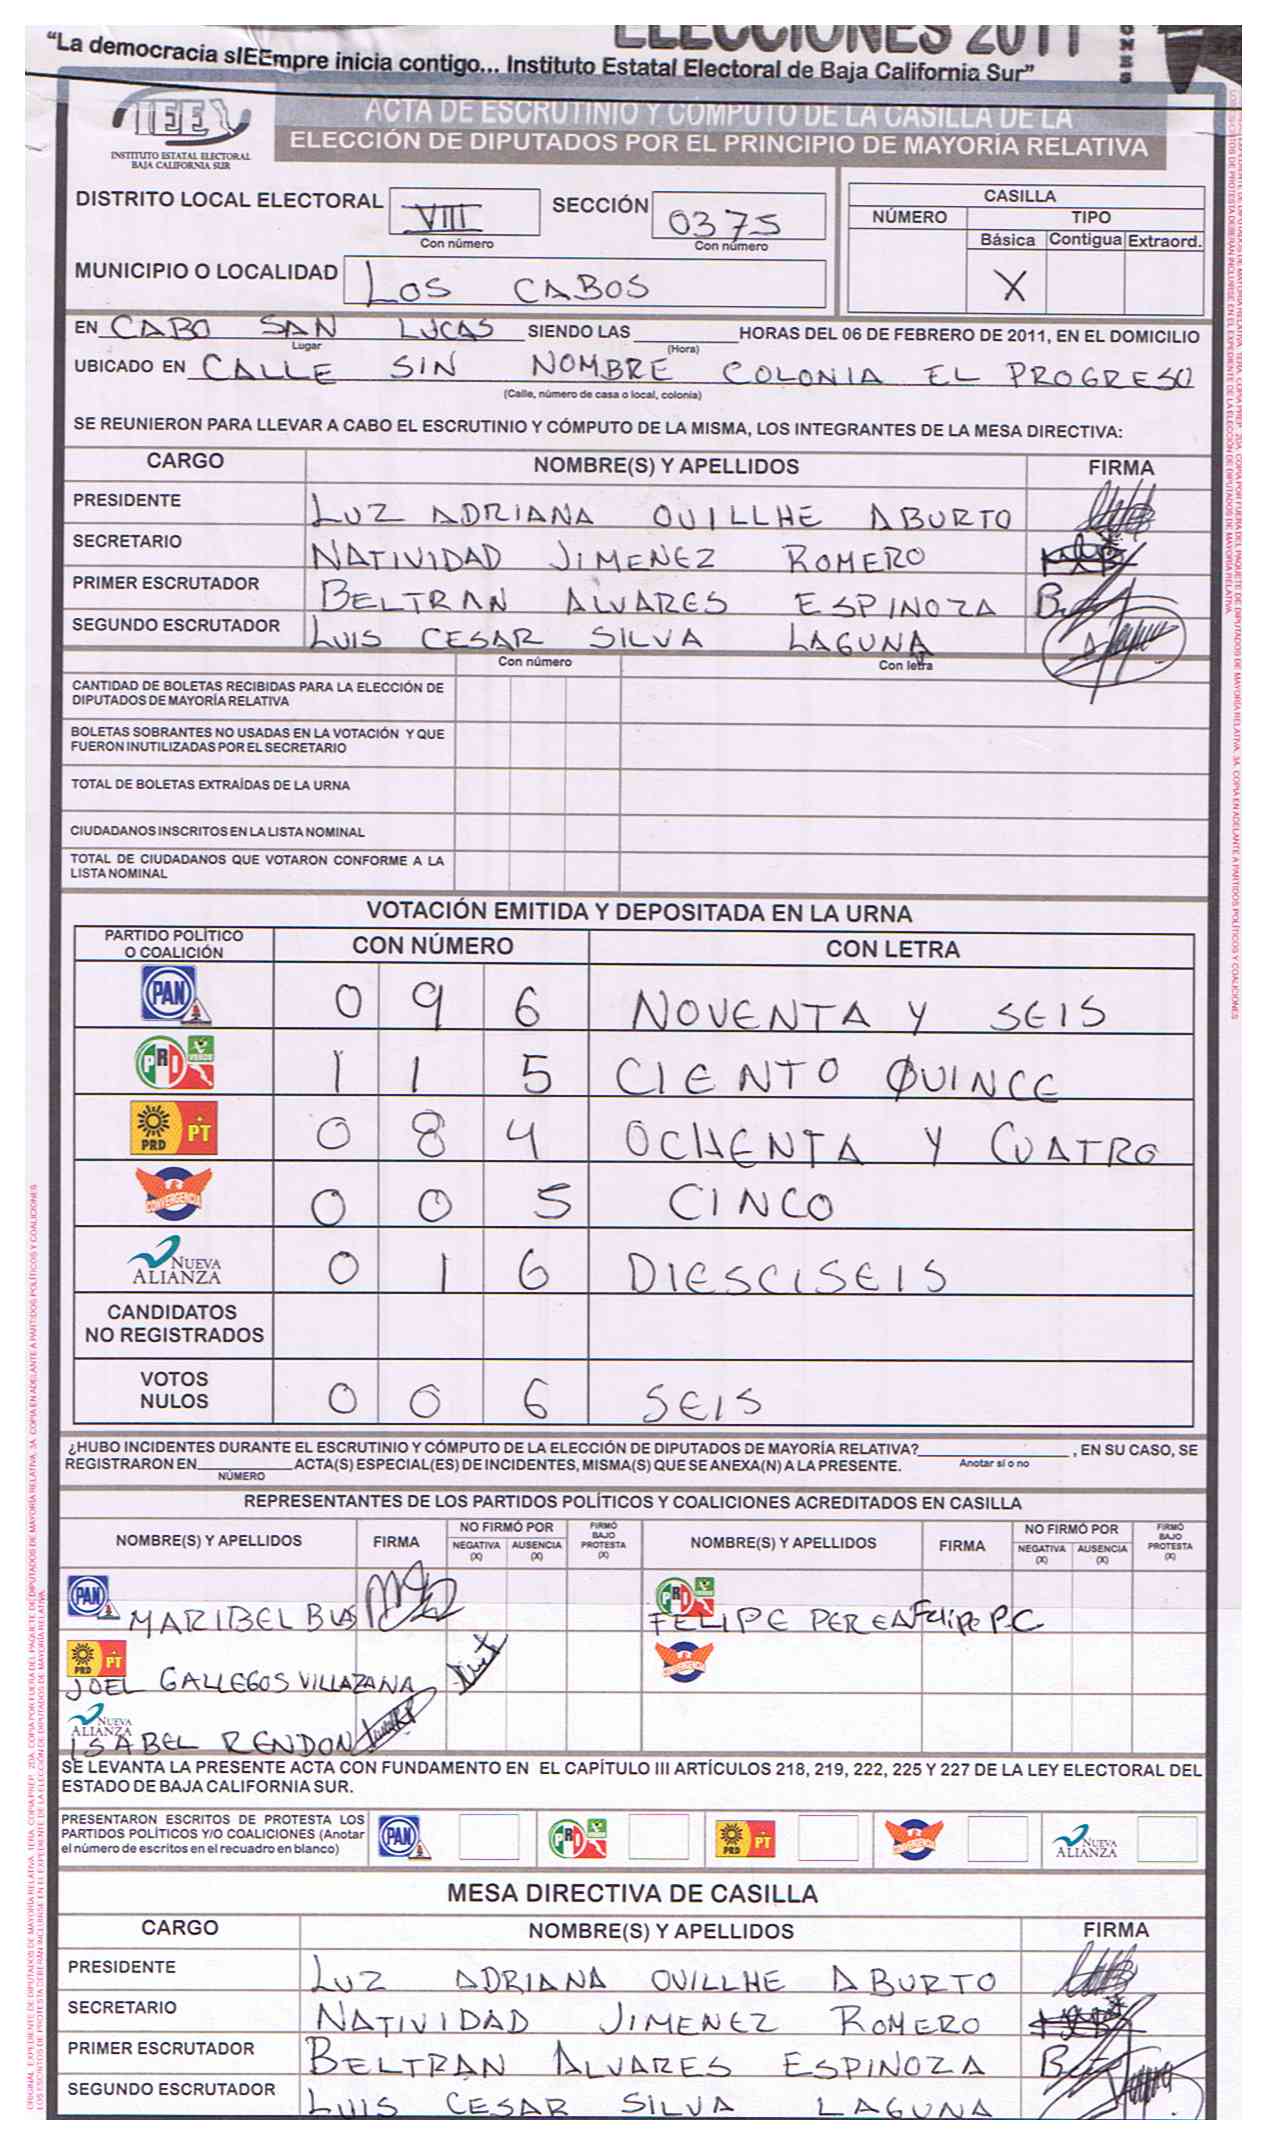 ELECCIONES 2011
"La democracia sIEEmpre inicia contigo... Instituto Estatal Electoral de Baja California Sur"
IEE
INSTITUTO ESTATAL ELECTORAL
BAJA CALIFORNIA SUR
ACTA DE ESCRUTINIO Y CÓMPUTO DE LA CASILLA DE LA
ELECCIÓN DE DIPUTADOS POR EL PRINCIPIO DE MAYORÍA RELATIVA
DISTRITO LOCAL ELECTORAL VIII SECCIÓN 0375
Con número Con número
MUNICIPIO O LOCALIDAD LOS CABOS
CASILLA
NÚMERO TIPO
Básica Contigua Extraord.
X
EN CABO SAN LUCAS SIENDO LAS HORAS DEL 06 DE FEBRERO DE 2011, EN EL DOMICILIO
Lugar (Hora)
UBICADO EN CALLE SIN NOMBRE COLONIA EL PROGRESO
(Calle, número de casa o local, colonia)
SE REUNIERON PARA LLEVAR A CABO EL ESCRUTINIO Y CÓMPUTO DE LA MISMA, LOS INTEGRANTES DE LA MESA DIRECTIVA:
CARGO NOMBRE(S) Y APELLIDOS FIRMA
PRESIDENTE LUZ ADRIANA OUILLHE ABURTO
SECRETARIO NATIVIDAD JIMENEZ ROMERO
PRIMER ESCRUTADOR BELTRAN ALVARES ESPINOZA
SEGUNDO ESCRUTADOR LUIS CESAR SILVA LAGUNA
Con número Con letra
CANTIDAD DE BOLETAS RECIBIDAS PARA LA ELECCIÓN DE
DIPUTADOS DE MAYORÍA RELATIVA
BOLETAS SOBRANTES NO USADAS EN LA VOTACIÓN Y QUE
FUERON INUTILIZADAS POR EL SECRETARIO
TOTAL DE BOLETAS EXTRAÍDAS DE LA URNA
CIUDADANOS INSCRITOS EN LA LISTA NOMINAL
TOTAL DE CIUDADANOS QUE VOTARON CONFORME A LA
LISTA NOMINAL
VOTACIÓN EMITIDA Y DEPOSITADA EN LA URNA
PARTIDO POLÍTICO
O COALICIÓN CON NÚMERO CON LETRA
PAN 0 9 6 NOVENTA Y SEIS
PRI VERDE 1 1 5 CIENTO QUINCE
PRD PT 0 8 4 OCHENTA Y CUATRO
CONVERGENCIA 0 0 5 CINCO
NUEVA ALIANZA 0 1 6 DIESCISEIS
CANDIDATOS
NO REGISTRADOS
VOTOS
NULOS 0 0 6 SEIS
¿HUBO INCIDENTES DURANTE EL ESCRUTINIO Y CÓMPUTO DE LA ELECCIÓN DE DIPUTADOS DE MAYORÍA RELATIVA? , EN SU CASO, SE
REGISTRARON EN ACTA(S) ESPECIAL(ES) DE INCIDENTES, MISMA(S) QUE SE ANEXA(N) A LA PRESENTE. Anotar sí o no
NÚMERO
REPRESENTANTES DE LOS PARTIDOS POLÍTICOS Y COALICIONES ACREDITADOS EN CASILLA
NOMBRE(S) Y APELLIDOS FIRMA NO FIRMÓ POR NEGATIVA (X) AUSENCIA (X) FIRMÓ BAJO PROTESTA (X) NOMBRE(S) Y APELLIDOS FIRMA NO FIRMÓ POR NEGATIVA (X) AUSENCIA (X) FIRMÓ BAJO PROTESTA (X)
PAN MARIBEL BUS PRI VERDE FELIPE PEREA Felipe P.C
PRD PT JOEL GALLEGOS VILLAZANA CONVERGENCIA
NUEVA ALIANZA ISABEL RENDON
SE LEVANTA LA PRESENTE ACTA CON FUNDAMENTO EN EL CAPÍTULO III ARTÍCULOS 218, 219, 222, 225 Y 227 DE LA LEY ELECTORAL DEL
ESTADO DE BAJA CALIFORNIA SUR.
PRESENTARON ESCRITOS DE PROTESTA LOS
PARTIDOS POLÍTICOS Y/O COALICIONES (Anotar
el número de escritos en el recuadro en blanco)
PAN PRI VERDE PRD PT CONVERGENCIA NUEVA ALIANZA
MESA DIRECTIVA DE CASILLA
CARGO NOMBRE(S) Y APELLIDOS FIRMA
PRESIDENTE LUZ ADRIANA OUILLHE ABURTO
SECRETARIO NATIVIDAD JIMENEZ ROMERO
PRIMER ESCRUTADOR BELTRAN ALVARES ESPINOZA
SEGUNDO ESCRUTADOR LUIS CESAR SILVA LAGUNA